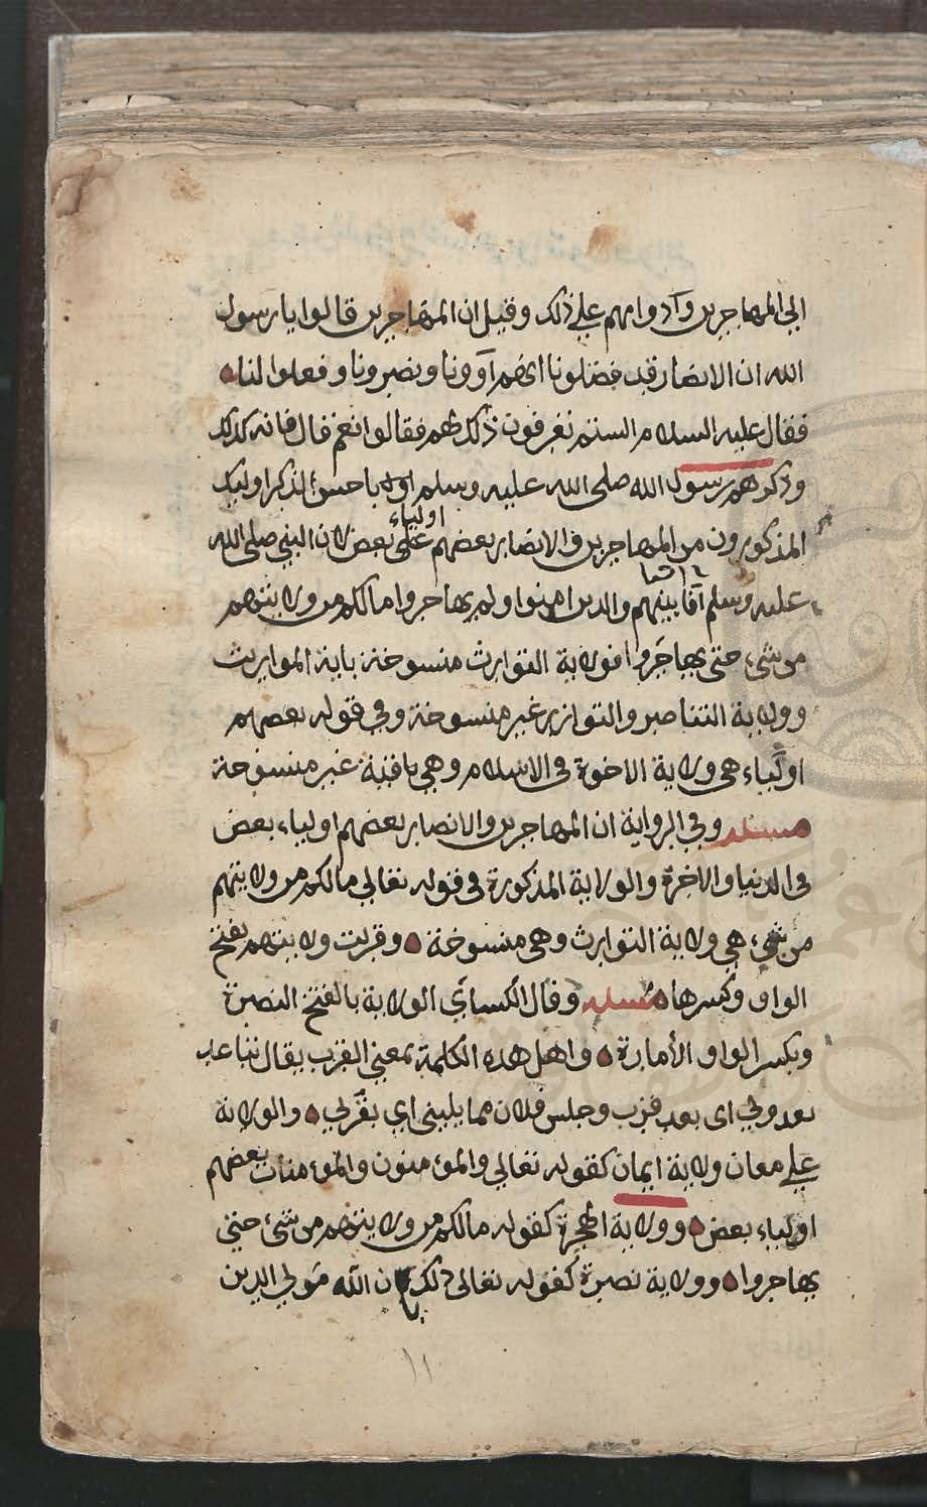 الي المهاجرين وآدوا بهم علي ذلك وقيل ان المهاجرين قالوا يا رسول
الله ان الانصار قد فضلونا اي هم آوونا ونصرونا وفعلوا لنا
فقال عليه السلام الستم تعرفون ذلك لهم فقالوا نعم قال فانه كذلك
وذكرهم رسول الله صلي الله عليه وسلم اوله باحسن الذكر اوليك
المذكورون من المهاجرين والانصار بعضهم اولياء علي بعض لان النبي صلي الله
عليه وسلم آخا بينهم والذين امنوا ولم يهاجروا ما لكم من ولايتهم
من شيء حتي يهاجروا فولاية التوارث منسوخة باية المواريث
وولاية التناصر والتوازر غير منسوخة وفي قوله بعضهم
اولياء هي ولاية الاخوة في الاسلام وهي باقية غير منسوخة
مسئله وفي الرواية ان المهاجرين والانصار بعضهم اولياء بعض
في الدنيا والاخرة والولاية المذكورة في قوله تعالي ما لكم من ولايتهم
من شيء هي ولاية التوارث وهي منسوخة وقريت ولايتهم بفتح
الواو وكسرها مسئله وقال الكسائي الولاية بالفتح النصرة
وبكسر الواو الأمارة واهل هذه الكلمة بمعني القرب يقال تباعد
بعد ولي اي بعد قرب وجلس فلان مما يليني اي يقربي والولاية
علي معان ولاية ايمان كقوله تعالي والمؤمنون والمؤمنات بعضهم
اولياء بعض وولاية الهجرة كقوله ما لكم من ولايتهم من شيء حتي
يهاجروا وولاية نصرة كقوله تعالي ذلك بان الله مولي الذين
١١